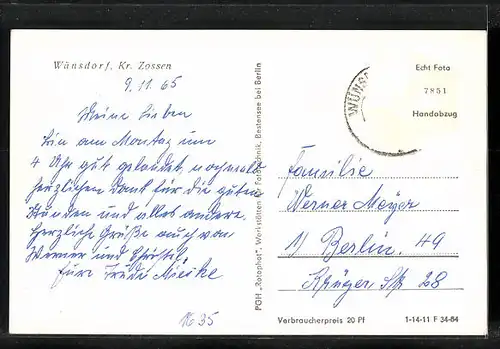 Wünsdorf, Kr. Zossen
9.11.65
Meine Lieben
bin am Montag um
4 Uhr gut gelandet, nochmals
herzlichen Dank für die guten
Stunden und alles andere.
Herzliche Grüße auch von
Werner und Christel.
Eure Trude Mieike
1635
PGH „Rotophot", Werkstätten f. Fototechnik, Bestensee bei Berlin
WÜNS
Echt Foto
7851
Handabzug
Familie
Werner Meyer
1) Berlin. 49
Krüger Str 28
Verbraucherpreis 20 Pf
1-14-11 F 34-64